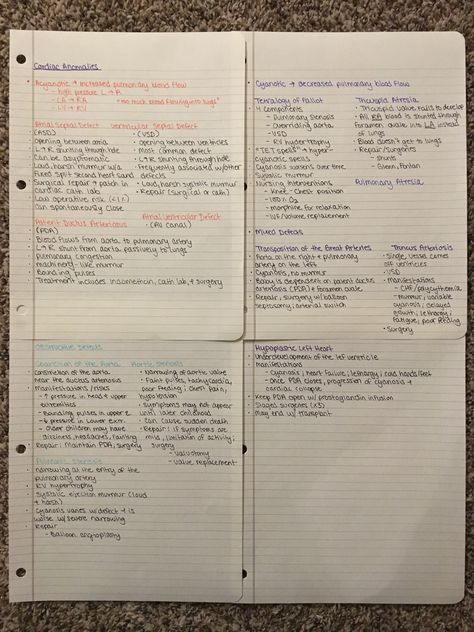 Cardiac Anomalies
Acyanotic → increased pulmonary blood flow
- high pressure L → R
- LA → RA
- LV → RV
"too much blood flowing into lungs"
Atrial Septal Defect
(ASD)
opening between atria
L → R shunting through hole
Can be asymptomatic
Loud, harsh murmur w/ a
fixed split second heart sound
Surgical repair → patch in
cardiac cath lab
Low operative risk (<1%)
Can spontaneously close
Ventricular Septal Defect
(VSD)
opening between ventricles
Most common defect
L → R shunting through hole
Frequently associated w/ other
defects
Loud, harsh systolic murmur
Repair (surgical or cath)
Patent Ductus Arteriosus
(PDA)
Atrial Ventricular Defect
(AV Canal)
Blood flows from aorta to pulmonary artery
L → R shunt from aorta passively to lungs
pulmonary congestion
machinery-like murmur
Bounding pulses
Treatment includes indomethacin, cath lab, + surgery
Cyanotic → decreased pulmonary blood flow
Tetralogy of Fallot
4 components
- Pulmonary stenosis
- Overriding aorta
- VSD
- RV hypertrophy
"TET spells" → hyper-
cyanotic spells
Cyanosis worsens over time
Systolic murmur
Nursing interventions
- Knee-chest position
- 100% O2
- morphine for relaxation
- IVF/volume replacement
Tricuspid Atresia
Tricuspid valve fails to develop
All RA blood is shunted through
foramen ovale into LA instead
of lungs
Blood doesn't get to lungs
Repair/surgeries
- shunts
- Glenn, Fontan
Pulmonary Atresia
Mixed Defects
Transposition of the Great Arteries
Aorta on the right + pulmonary
artery on the left
Cyanosis, no murmur
Baby is dependent on patent ductus
arteriosus (PDA) + foramen ovale
Repair; surgery w/ balloon
septostomy; arterial switch
Truncus Arteriosis
Single vessel comes
off ventricles
VSD
Manifestations
- CHF/polycythemia
- murmur, variable
cyanosis, delayed
growth, lethargy,
fatigue, poor feeding
Surgery
Obstructive Defects
Coarctation of the Aorta
Constriction of the aorta
near the ductus arteriosus
Manifestations/risks
- ↑ pressure in head + upper
extremities
- Bounding pulses in upper e.
- ↓ pressure in lower extr.
- Older children may have
dizziness, headaches, fainting
Repair: Maintain PDA, surgery
Aortic Stenosis
Narrowing of aortic valve
Faint pulses, tachycardia,
poor feeding, chest pain,
hypotension
Symptoms may not appear
until later childhood
Can cause sudden death
Repair: if symptoms are
mild, limitation of activity;
surgery
- valvotomy
- valve replacement
Pulmonic Stenosis
narrowing at the entry of the
pulmonary artery
RV hypertrophy
Systolic ejection murmur (loud
+ harsh)
Cyanosis varies w/ defect + is
worse w/ severe narrowing
Repair
- Balloon angioplasty
Hypoplastic Left Heart
Underdevelopment of the left ventricle
Manifestations
- Cyanosis, heart failure, lethargy, cold hands/feet
- once PDA closes, progression of cyanosis +
cardiac collapse
Keep PDA open w/ prostaglandin infusion
Staged surgeries (x3)
May end w/ transplant